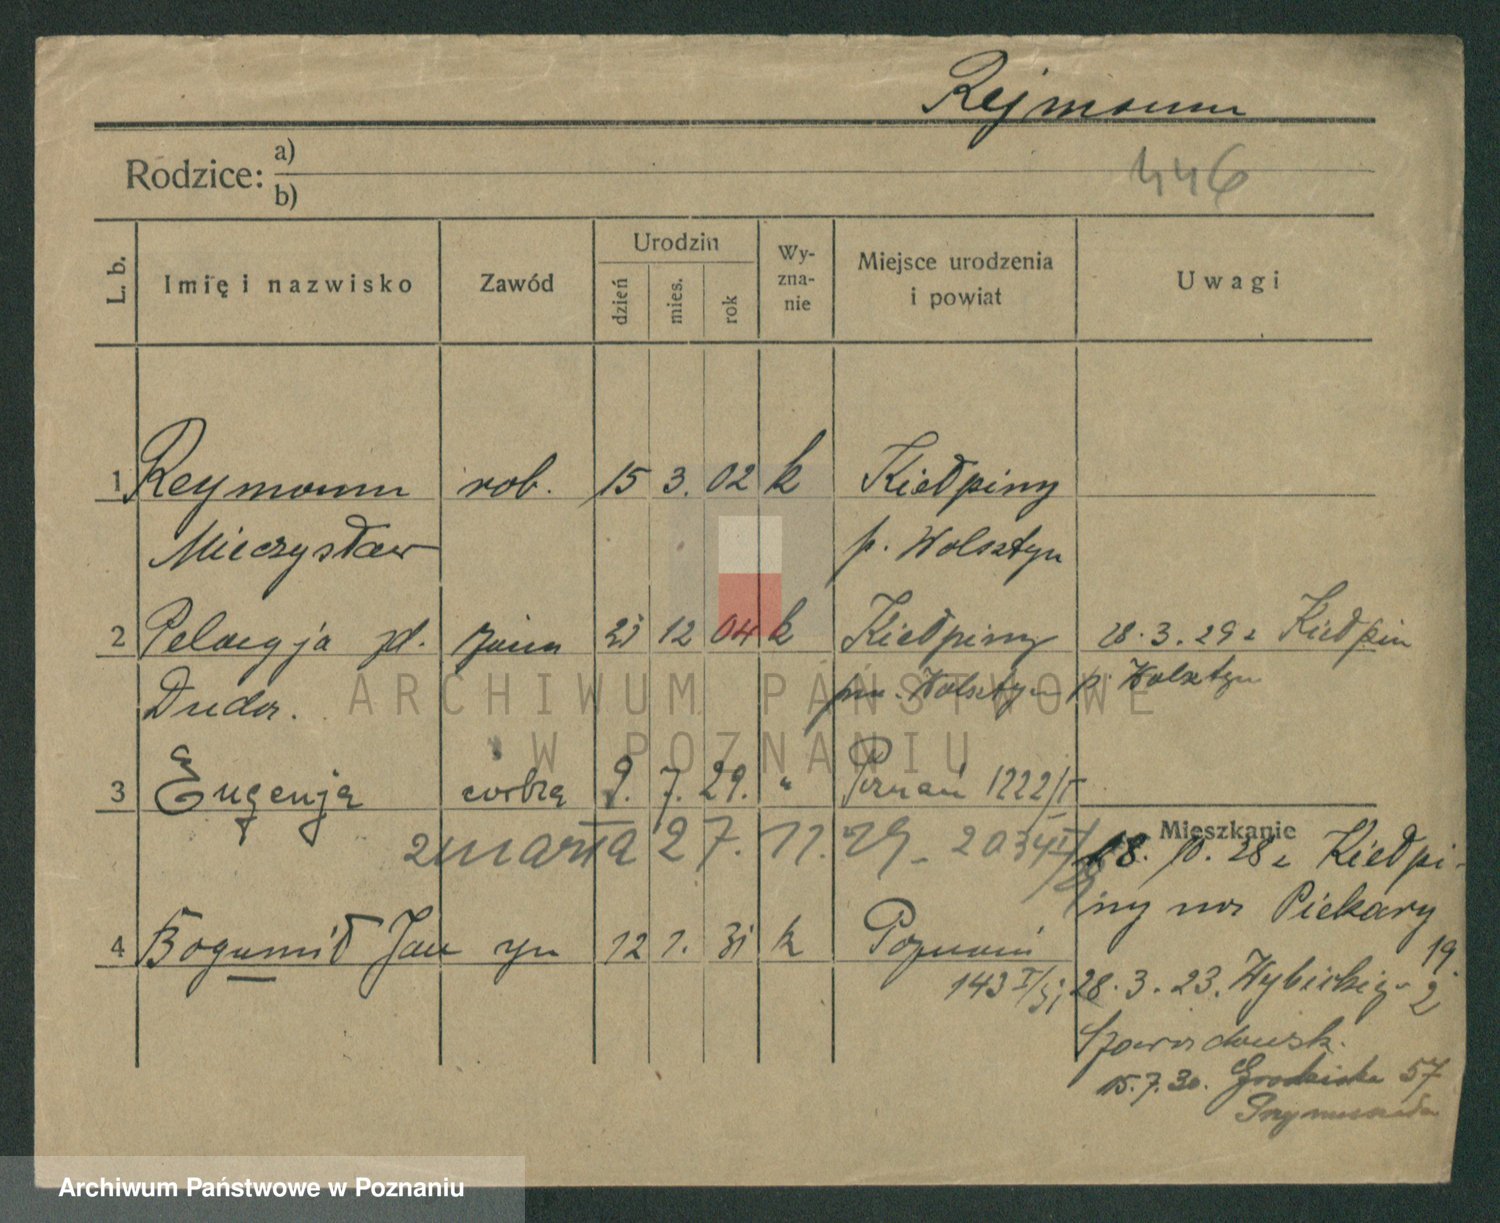 Rejmann
Rodzice: a)
b)
446
L. b. Imię i nazwisko Zawód Urodzin dzień mies. rok Wy-zna-nie Miejsce urodzenia i powiat Uwagi
1 Reymann rob. 15 3. 02 k Kiełpiny
Mieczysław p. Wolsztyn
2 Pelagja zd. żona 23 12 04 k Kiełpiny 28.3.29 z Kiełpin
Duda. pow. Wolsztyn p. Wolsztyn
3 Eugenja córka 9. 7. 29. " Poznań 1222/I
zmarła 27. 11. 29.
Mieszkanie
18. 10. 28 z Kiełpi-
ny na Piekary
19.
4 Bogumił Jan syn 12 1. 31 k Poznań
143 I/31
28.3.23. Wybickiego 2
15.7.30. Grodziska 57
ARCHIWUM PAŃSTWOWE
W POZNANIU
Archiwum Państwowe w Poznaniu